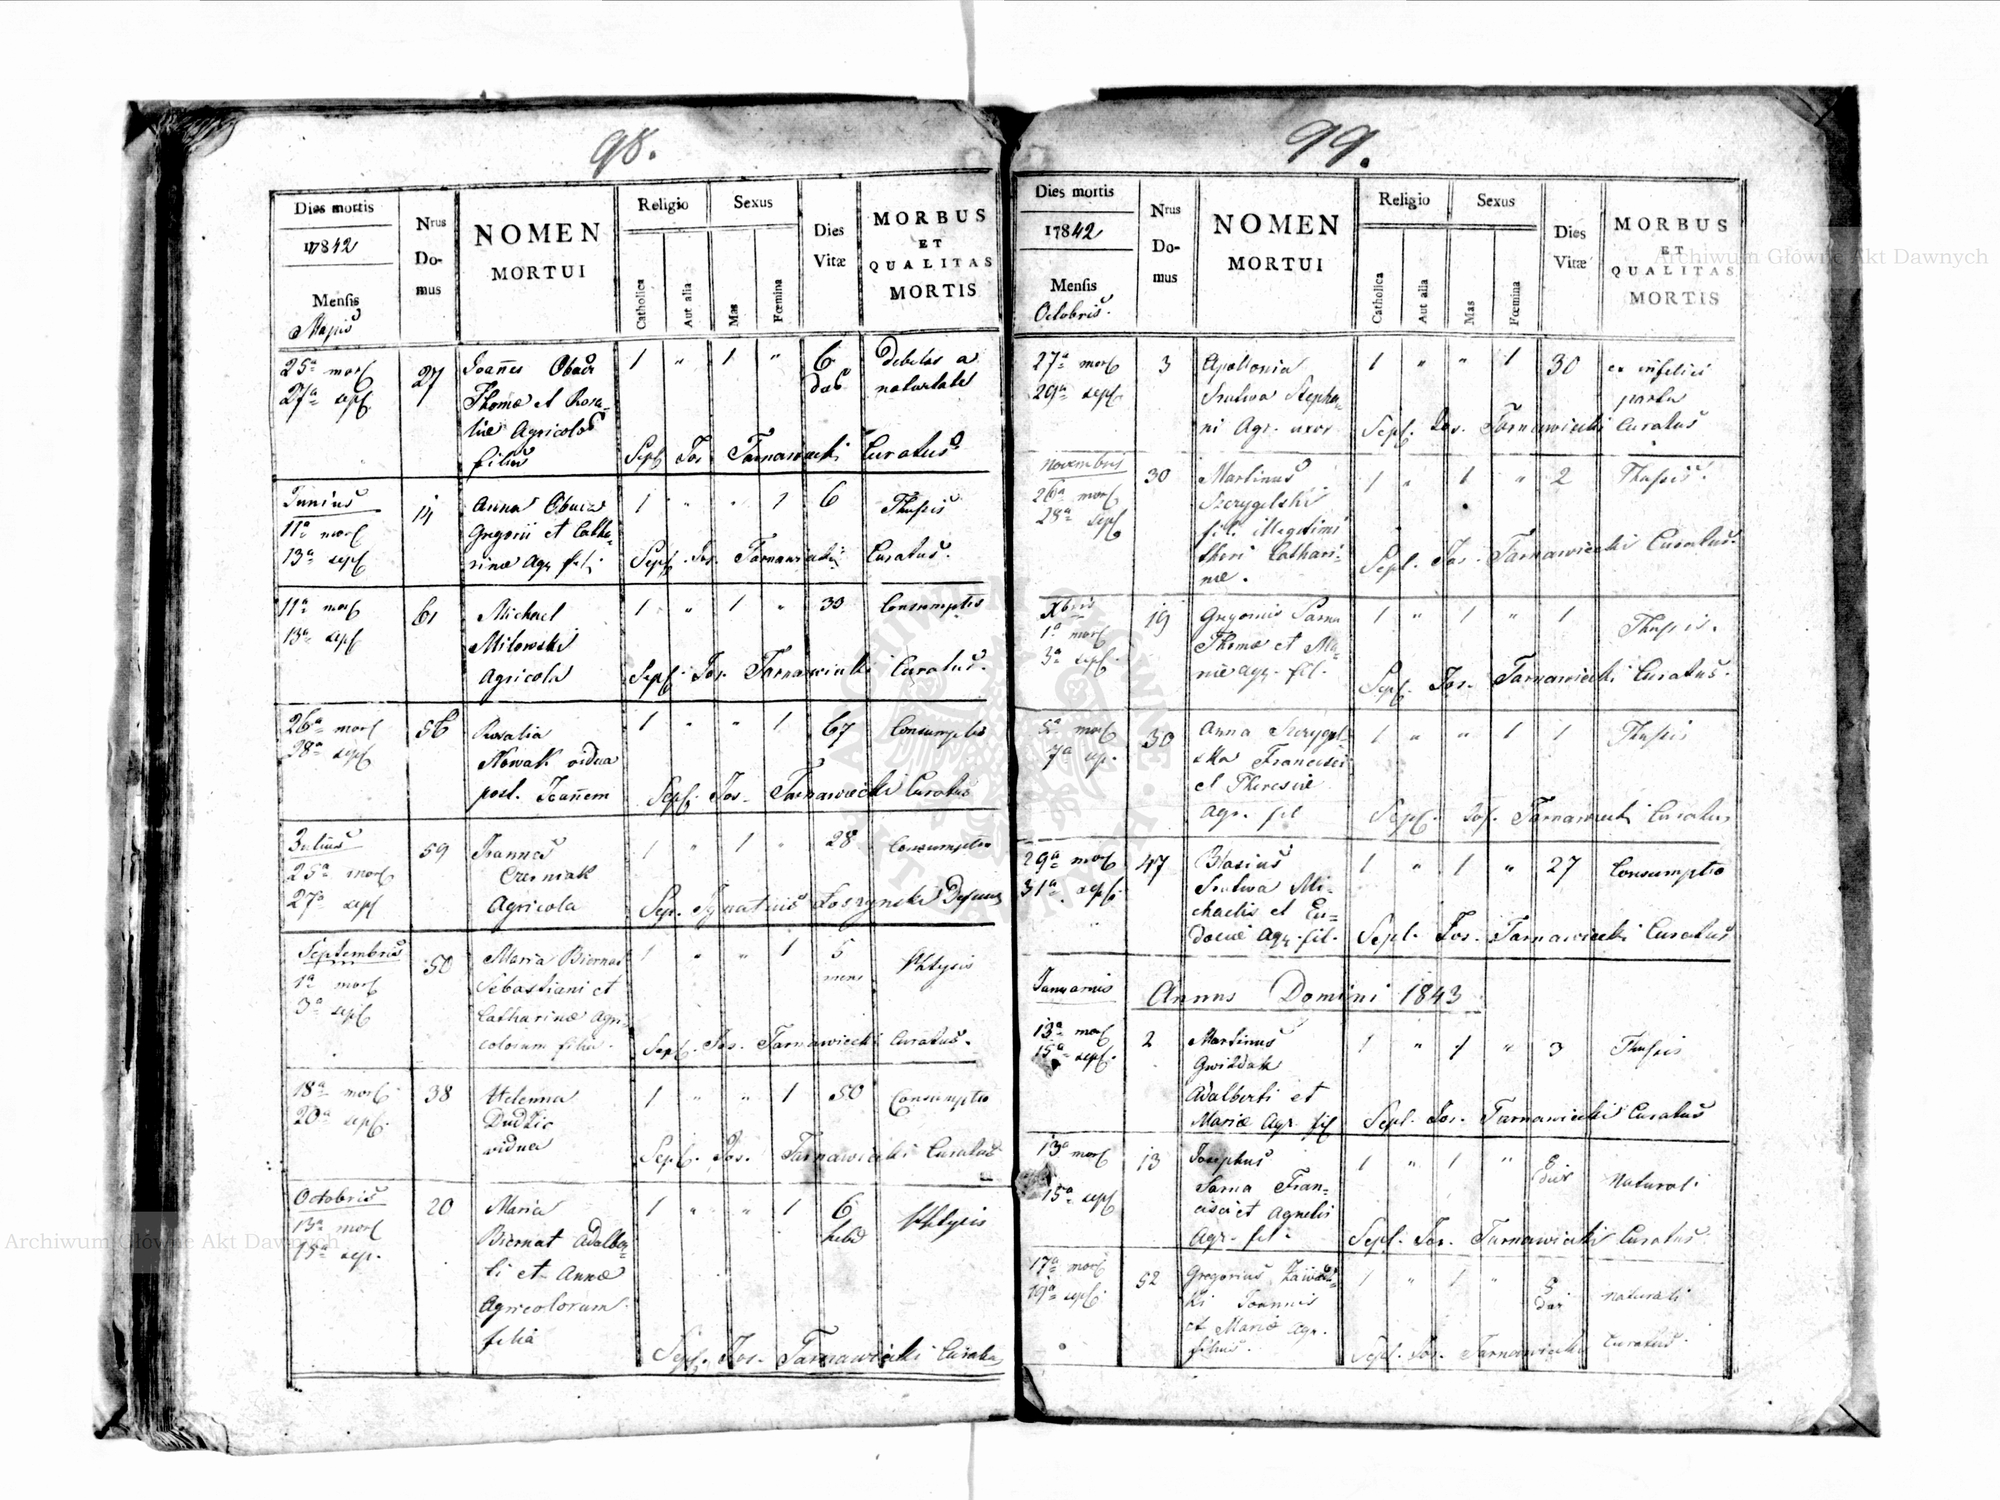 98.
Dies mortis
17842
Mensis
Majus
Nrus
Do-
mus
NOMEN
MORTUI
Religio
Catholica
Aut alia
Sexus
Mas
Fœmina
Dies
Vitæ
MORBUS
ET
QUALITAS
MORTIS
25a mort
27a sep.
27
Joañes
Thomæ et Rosa-
liæ Agricolos
filius
1 " 1 "
6
Debilis a
Sept. Jos. Tarnawiecki Curatus
Junius
11a mort
13a sepf
14
Anna
Gregorii et Catha-
rinæ Agr. fil.
1 " " 1
6
Thussis
Sepf. Jos. Tarnawiecki Curatus.
11a mort
13a sepf
61
Michael
Milowski
Agricola
1 " 1 "
30
Consumptio
Sepf. Jos. Tarnawiecki Curatus.
26a mort
28a sepf
56
Rosalia
Nowak vidua
post. Joañem
1 " " 1
67
Consumptio
Sepf. Jos. Tarnawiecki Curatus
Julius
25a mort
27a sepf
59
Joannes
Czerniak
Agricola
1 " 1 "
28
Consumptio
Sep. Ignatius
Septembris
1a mort
3a sepf
50
Maria Biernat
Sebastiani et
Catharinæ Agri-
colorum filia.
1 " " 1
5
mens
Phtysis
Sepf. Jos. Tarnawiecki Curatus.
18a mort
20a sepf.
38
Helenna
Dudzic
vidua
1 " " 1
50
Consumptio
Sepf. Jos. Tarnawiecki Curatus
Octobris
13a mort
15a sep.
20
Maria
Biernat Adalber-
ti et Annæ
Agricolorum
filia
1 " " 1
6
hebd
Phtysis
Sepf. Jos. Tarnawiecki Curatus
99.
Dies mortis
17842
Mensis
Octobris.
Nrus
Do-
mus
NOMEN
MORTUI
Religio
Catholica
Aut alia
Sexus
Mas
Fœmina
Dies
Vitæ
MORBUS
ET
QUALITAS
MORTIS
27a mort
29a sepf.
3
Apollonia
Srutwa Stepha-
ni Agr. uxor
1 " " 1
30
ex infelici
partu
Sepf. Jos. Tarnawiecki Curatus
Novembris
26a mort
28a sepf
30
Martinus
Szczygelski
fil. illegitimi
thori Cathari-
næ.
1 " 1 "
2
Thussis.
Sepf. Jos. Tarnawiecki Curatus.
Xbris
1a mort
3a sepf.
19
Sarna
Thomæ et Ma-
riæ agr. fil.
1 " 1 "
1
Thussis.
Sepf. Jos. Tarnawiecki Curatus.
5a mort
7a sep.
30
Anna Szczygel
ska Francisci
et Theresiæ
Agr. fil
1 " " 1
1
Thussis
Sepf. Jos. Tarnawiecki Curatus
29a mort
31a sepf.
47
Blasius
Srutwa Mi-
chaelis et Eu-
dociæ Agr. fil.
1 " 1 "
27
Consumptio
Sepf. Jos. Tarnawiecki Curatus
Januarius
Annus Domini 1843
13a mort
15a sepf.
2
Martinus
Gwizdak
Adalberti et
Mariæ Agr. fil
1 " 1 "
3
Thussis
Sepf. Jos. Tarnawiecki Curatus
13a mort
15a sepf
13
Josephus
Sarna Fran-
cisci et Agnetis
Agr. fil.
1 " 1 "
Naturali
Sepf. Jos. Tarnawiecki Curatus.
17a mort
19a sepf.
52
Gregorius
ki Joannis
et Mariæ Agr.
filius.
1 " 1 "
naturali
Sepf. Jos. Tarnawiecki Curatus.
Archiwum Główne Akt Dawnych
Archiwum Główne Akt Dawnych